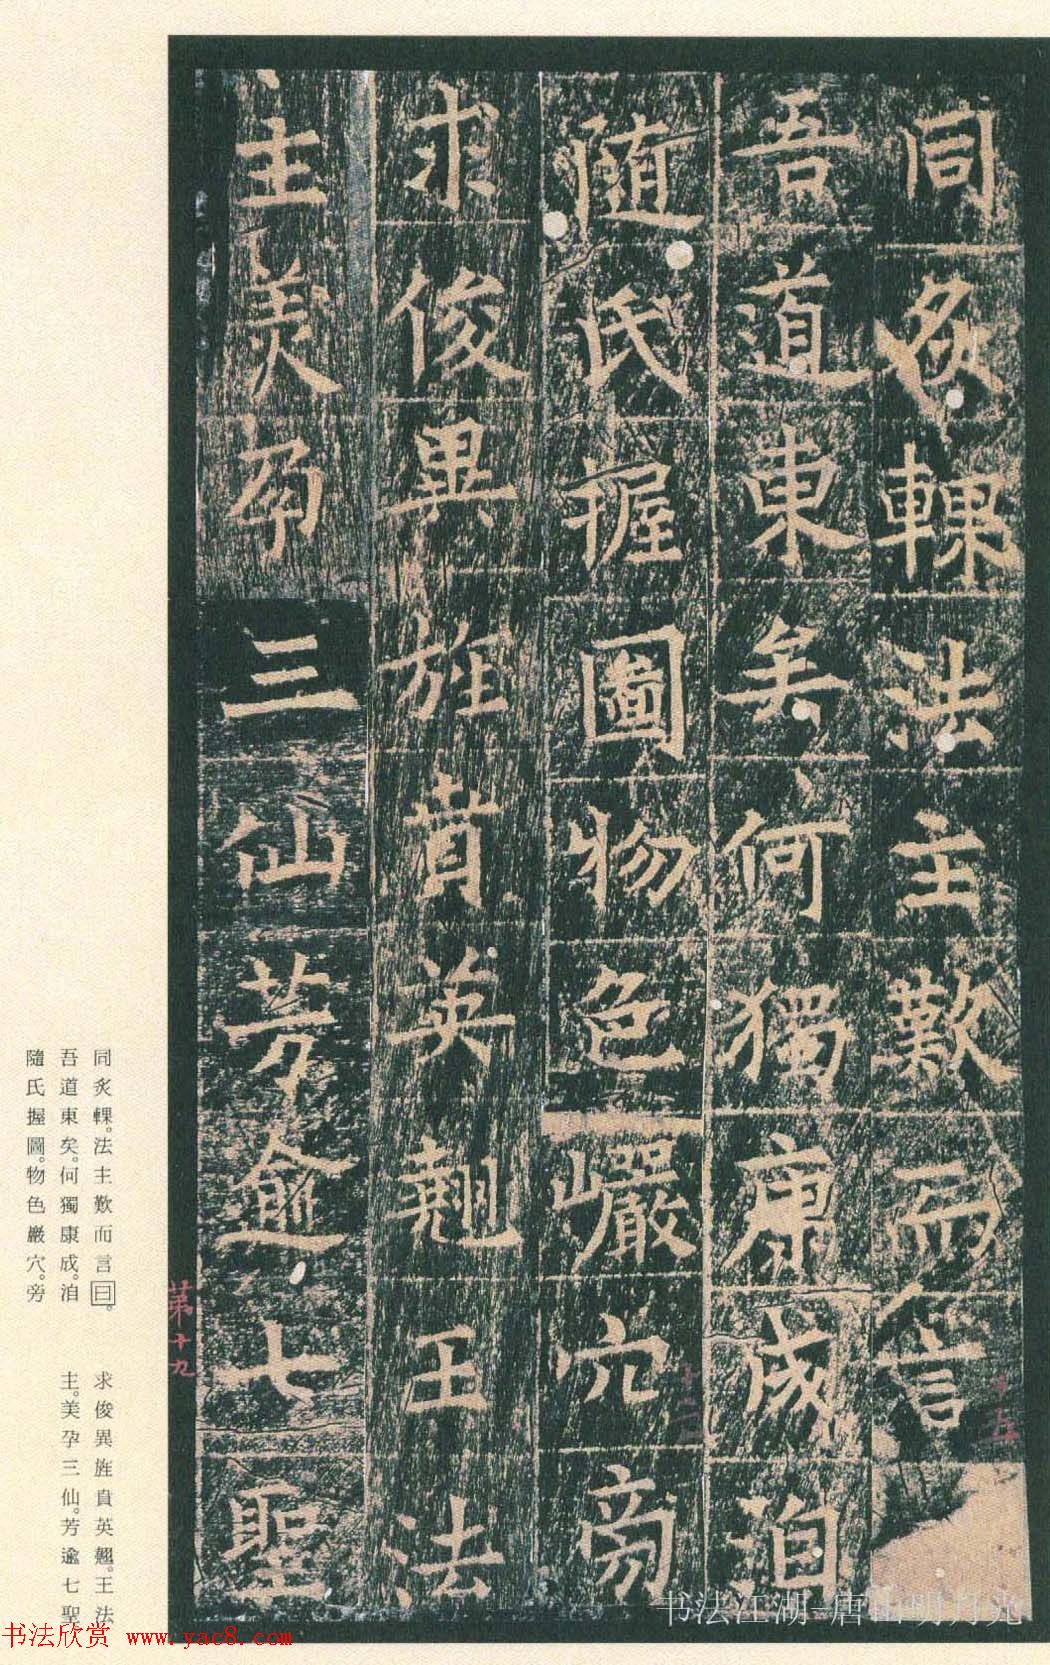 同炙輠法主歎而言
吾道東矣何獨康成洎
隨氏握圖物色巖穴旁
求俊異旌賁英翹王法
主美孕三仙芳逾七聖
十五
十二
第十九
同炙輠。法主歎而言曰。
吾道東矣。何獨康成。洎
隨氏握圖。物色巖穴。旁
求俊異旌賁英翹。王法
主。美孕三仙。芳逾七聖。
书法江湖-唐山明月兆
书法欣赏 www.yac8.com